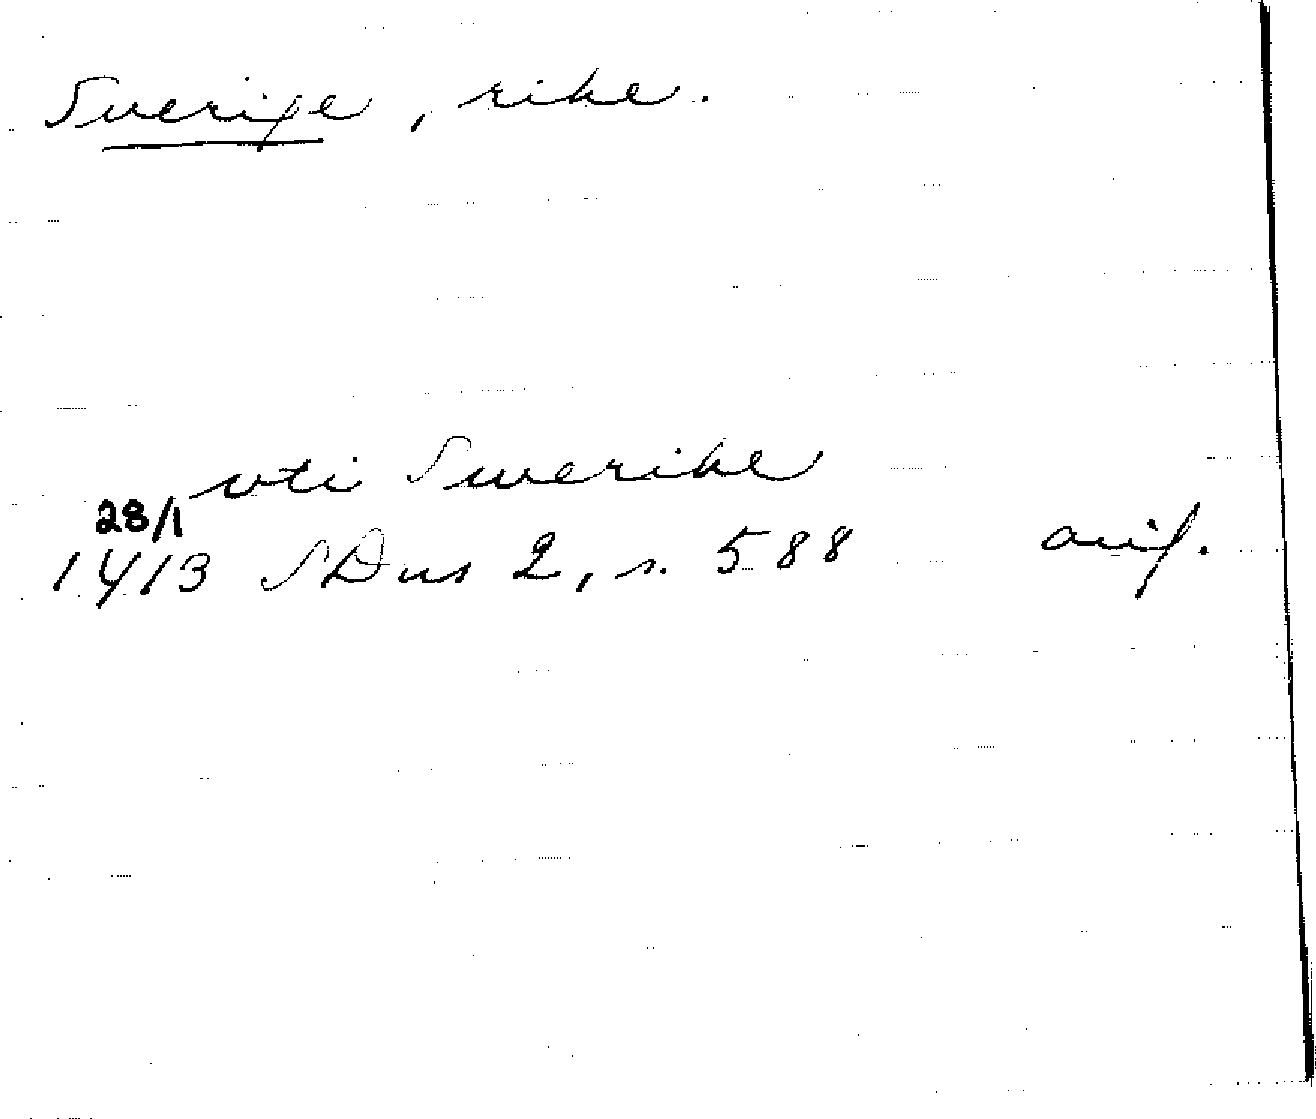 Sverige, rike.
vti Swerike
28/1
1413 SDns 2, s. 588 orig.